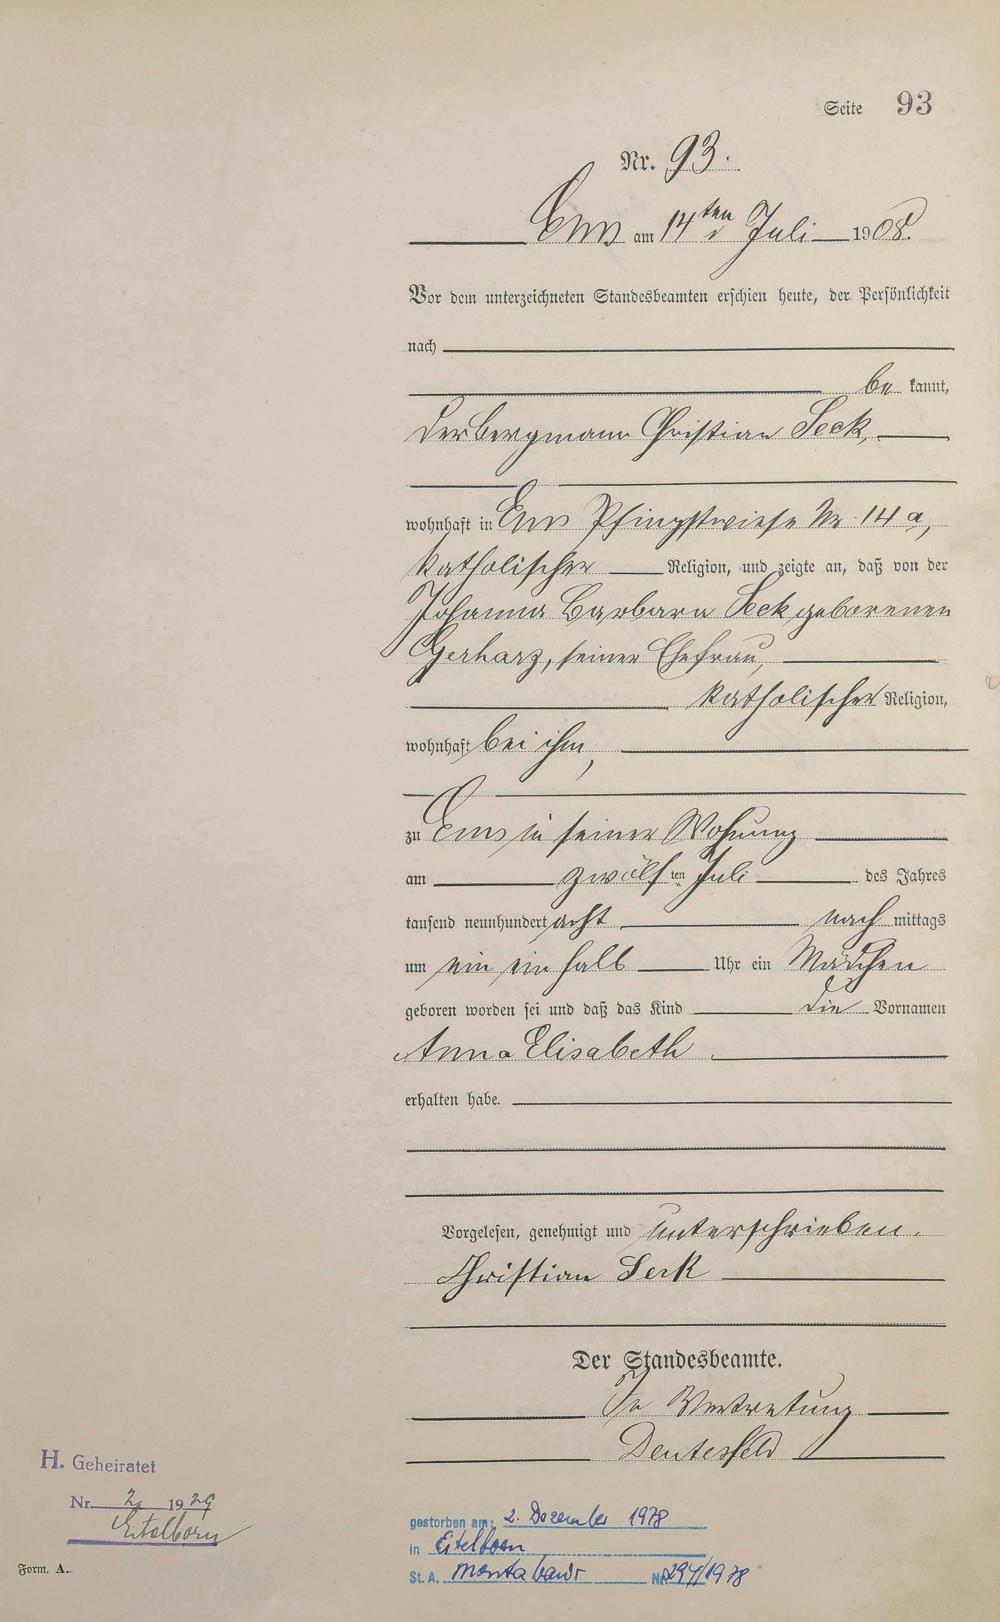 Seite 93
Nr. 93.
Ems am 14ten Juli 1908.
Vor dem unterzeichneten Standesbeamten erschien heute, der Persönlichkeit
nach
be kannt,
der Bergmann Christian Seck,
wohnhaft in Ems Pfingstwiese Nr 14 a,
katholischer Religion, und zeigte an, daß von der
Johanna Barbara Seck geborenen
Gerharz, seiner Ehefrau,
katholischer Religion,
wohnhaft bei ihm,
zu Ems in seiner Wohnung
am zwölften Juli des Jahres
tausend neunhundert acht nach mittags
um ein ein halb Uhr ein Mädchen
geboren worden sei und daß das Kind die Vornamen
Anna Elisabeth
erhalten habe.
Vorgelesen, genehmigt und unterschrieben.
Christian Seck
Der Standesbeamte.
In Vertretung
H. Geheiratet
Nr. 2 1929
Eitelborn
gestorben am: 2. Dezember 1978
in Eitelborn
St. A. Montabaur Nr. 294/1978
Form. A.